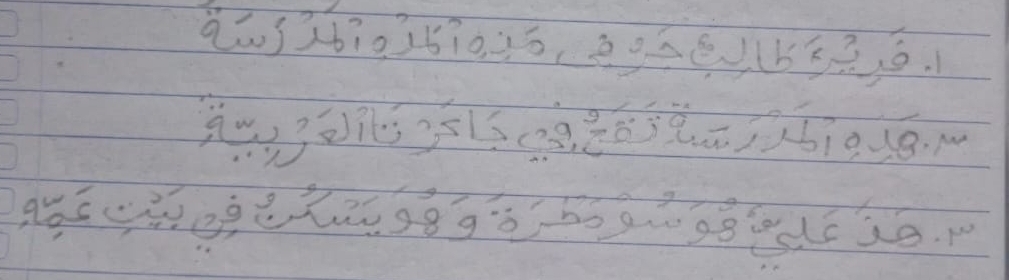 ١. فَرِيْدٌ طَالِبٌ جَدِيْدٌ فِي هَذِهِ الْمَدْرَسَةِ
٣. هَذِهِ الْمَدْرَسَةُ تَقَعُ فِي جَاكَرْتَا الْغَرْبِيَّةِ
٣. هَذَ عَلِيٌّ هُوَ سُوْمَطْرَةَ وَ هُوَ يَسْكُنُ فِي بَيْتِ عَمِّهِ